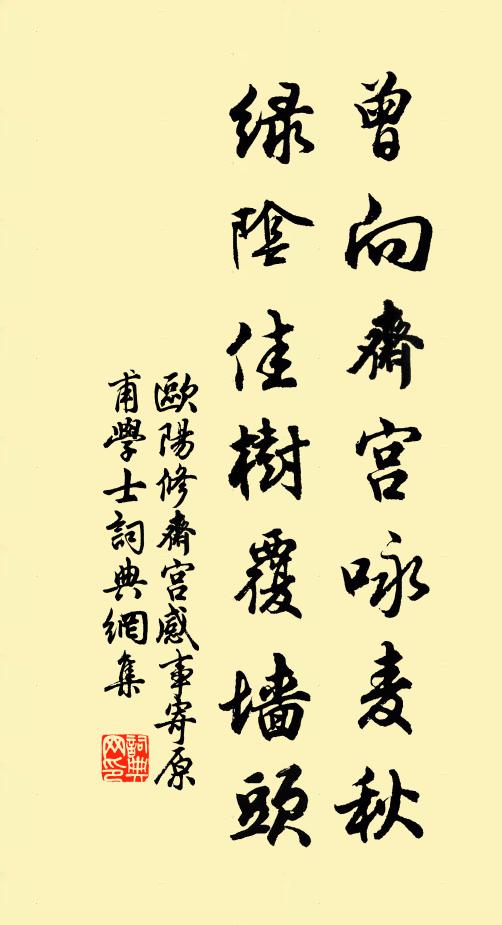 曾向齋宮咏麦秋
緑陰佳樹覆墻頭
歐陽修齋宮感事寄原
甫學士詞典網集
詞典
网印